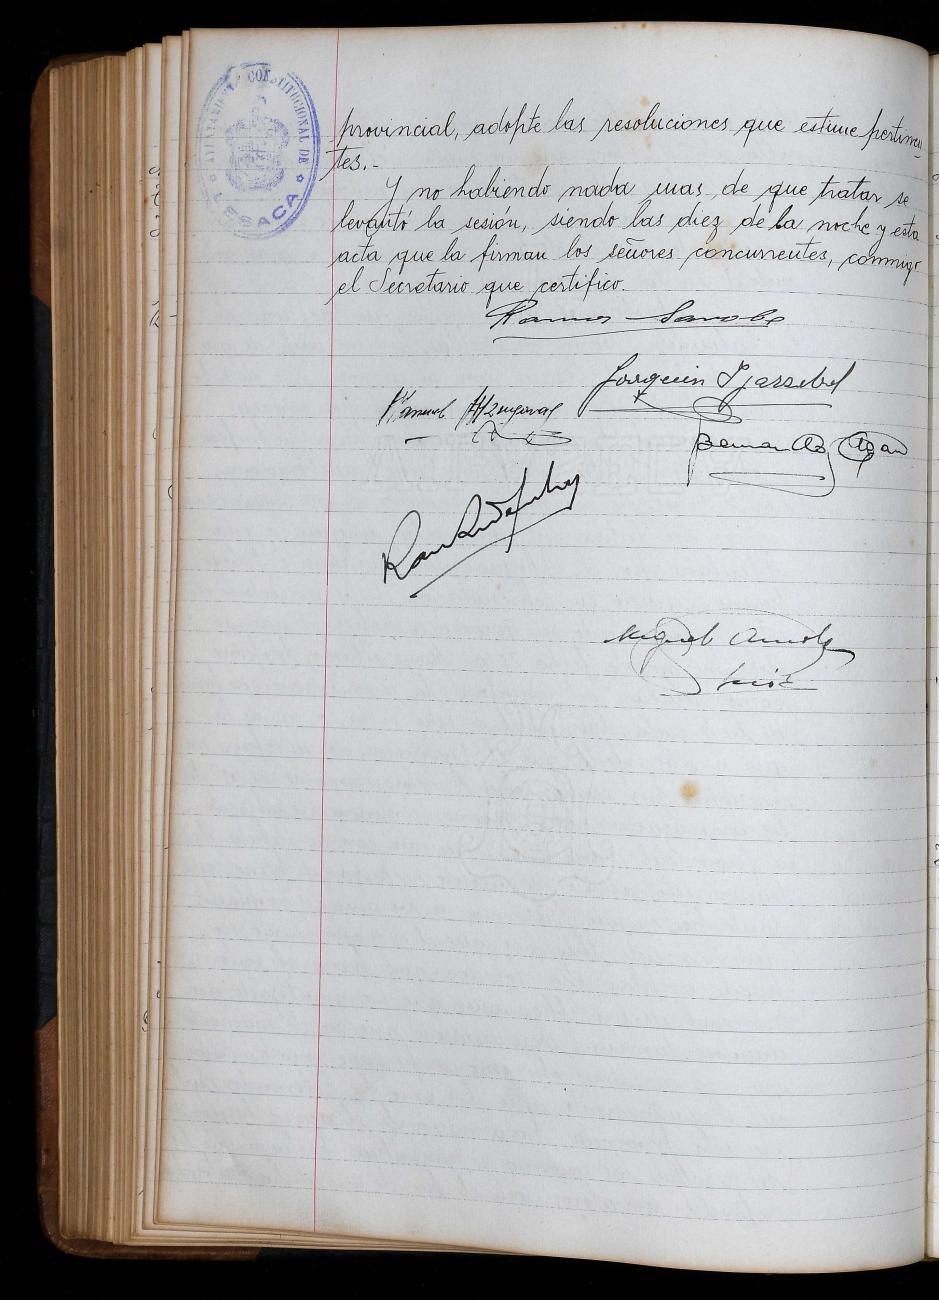 AYUNTAMIENTO CONSTITUCIONAL DE
LESACA
provincial, adopte las resoluciones que estime pertinen
tes.-
Y no habiendo nada mas de que tratar se
levantó la sesión, siendo las diez de la noche y esta
acta que la firman los señores concurrentes, conmigo
el Secretario que certifico.
Ramon Sarobe
Joaquin
Manuel
Bernardo
Miguel
Srio